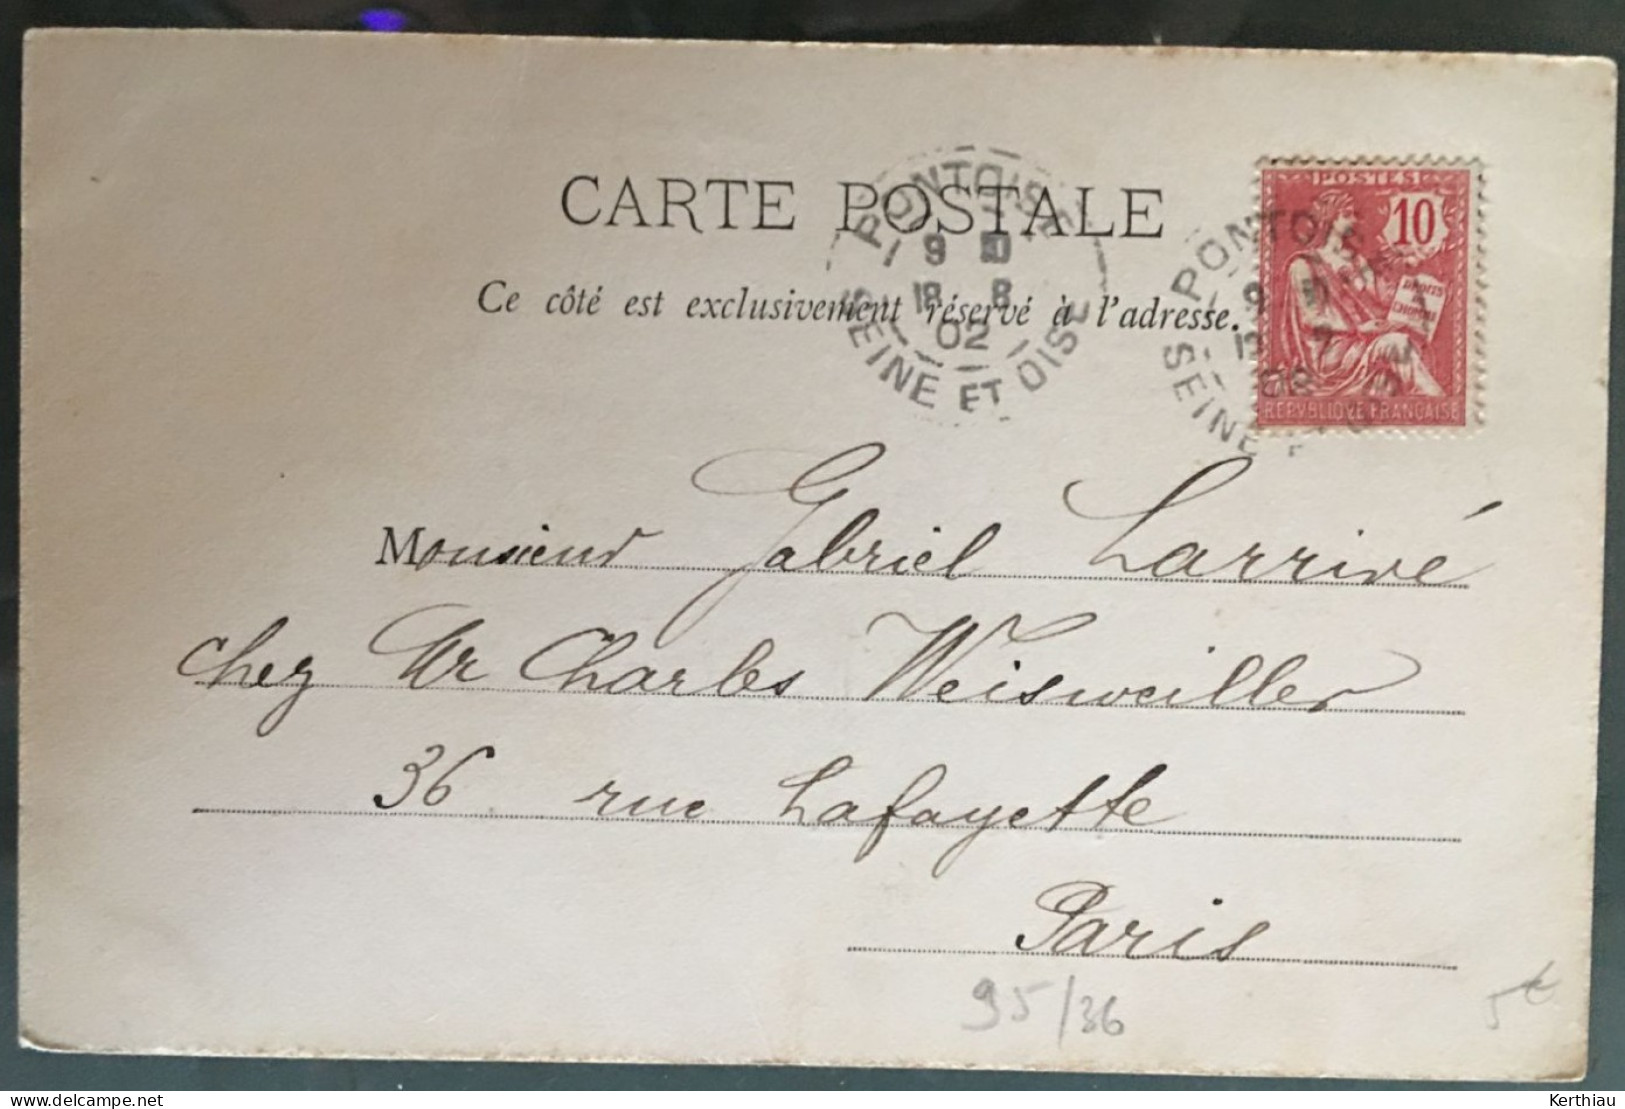 CARTE POSTALE
Ce côté est exclusivement réservé à l'adresse.
PONTOISE
9
18 8
02
SEINE ET OISE
POSTES
10
DROITS
DE
L'HOMME
REPVBLIQVE FRANÇAISE
PONTOISE
9
SEINE
Monsieur Gabriel Larrivé
chez Mr Charles Weisweiller
36 rue Lafayette
Paris
95/36
5€
Kerthiau